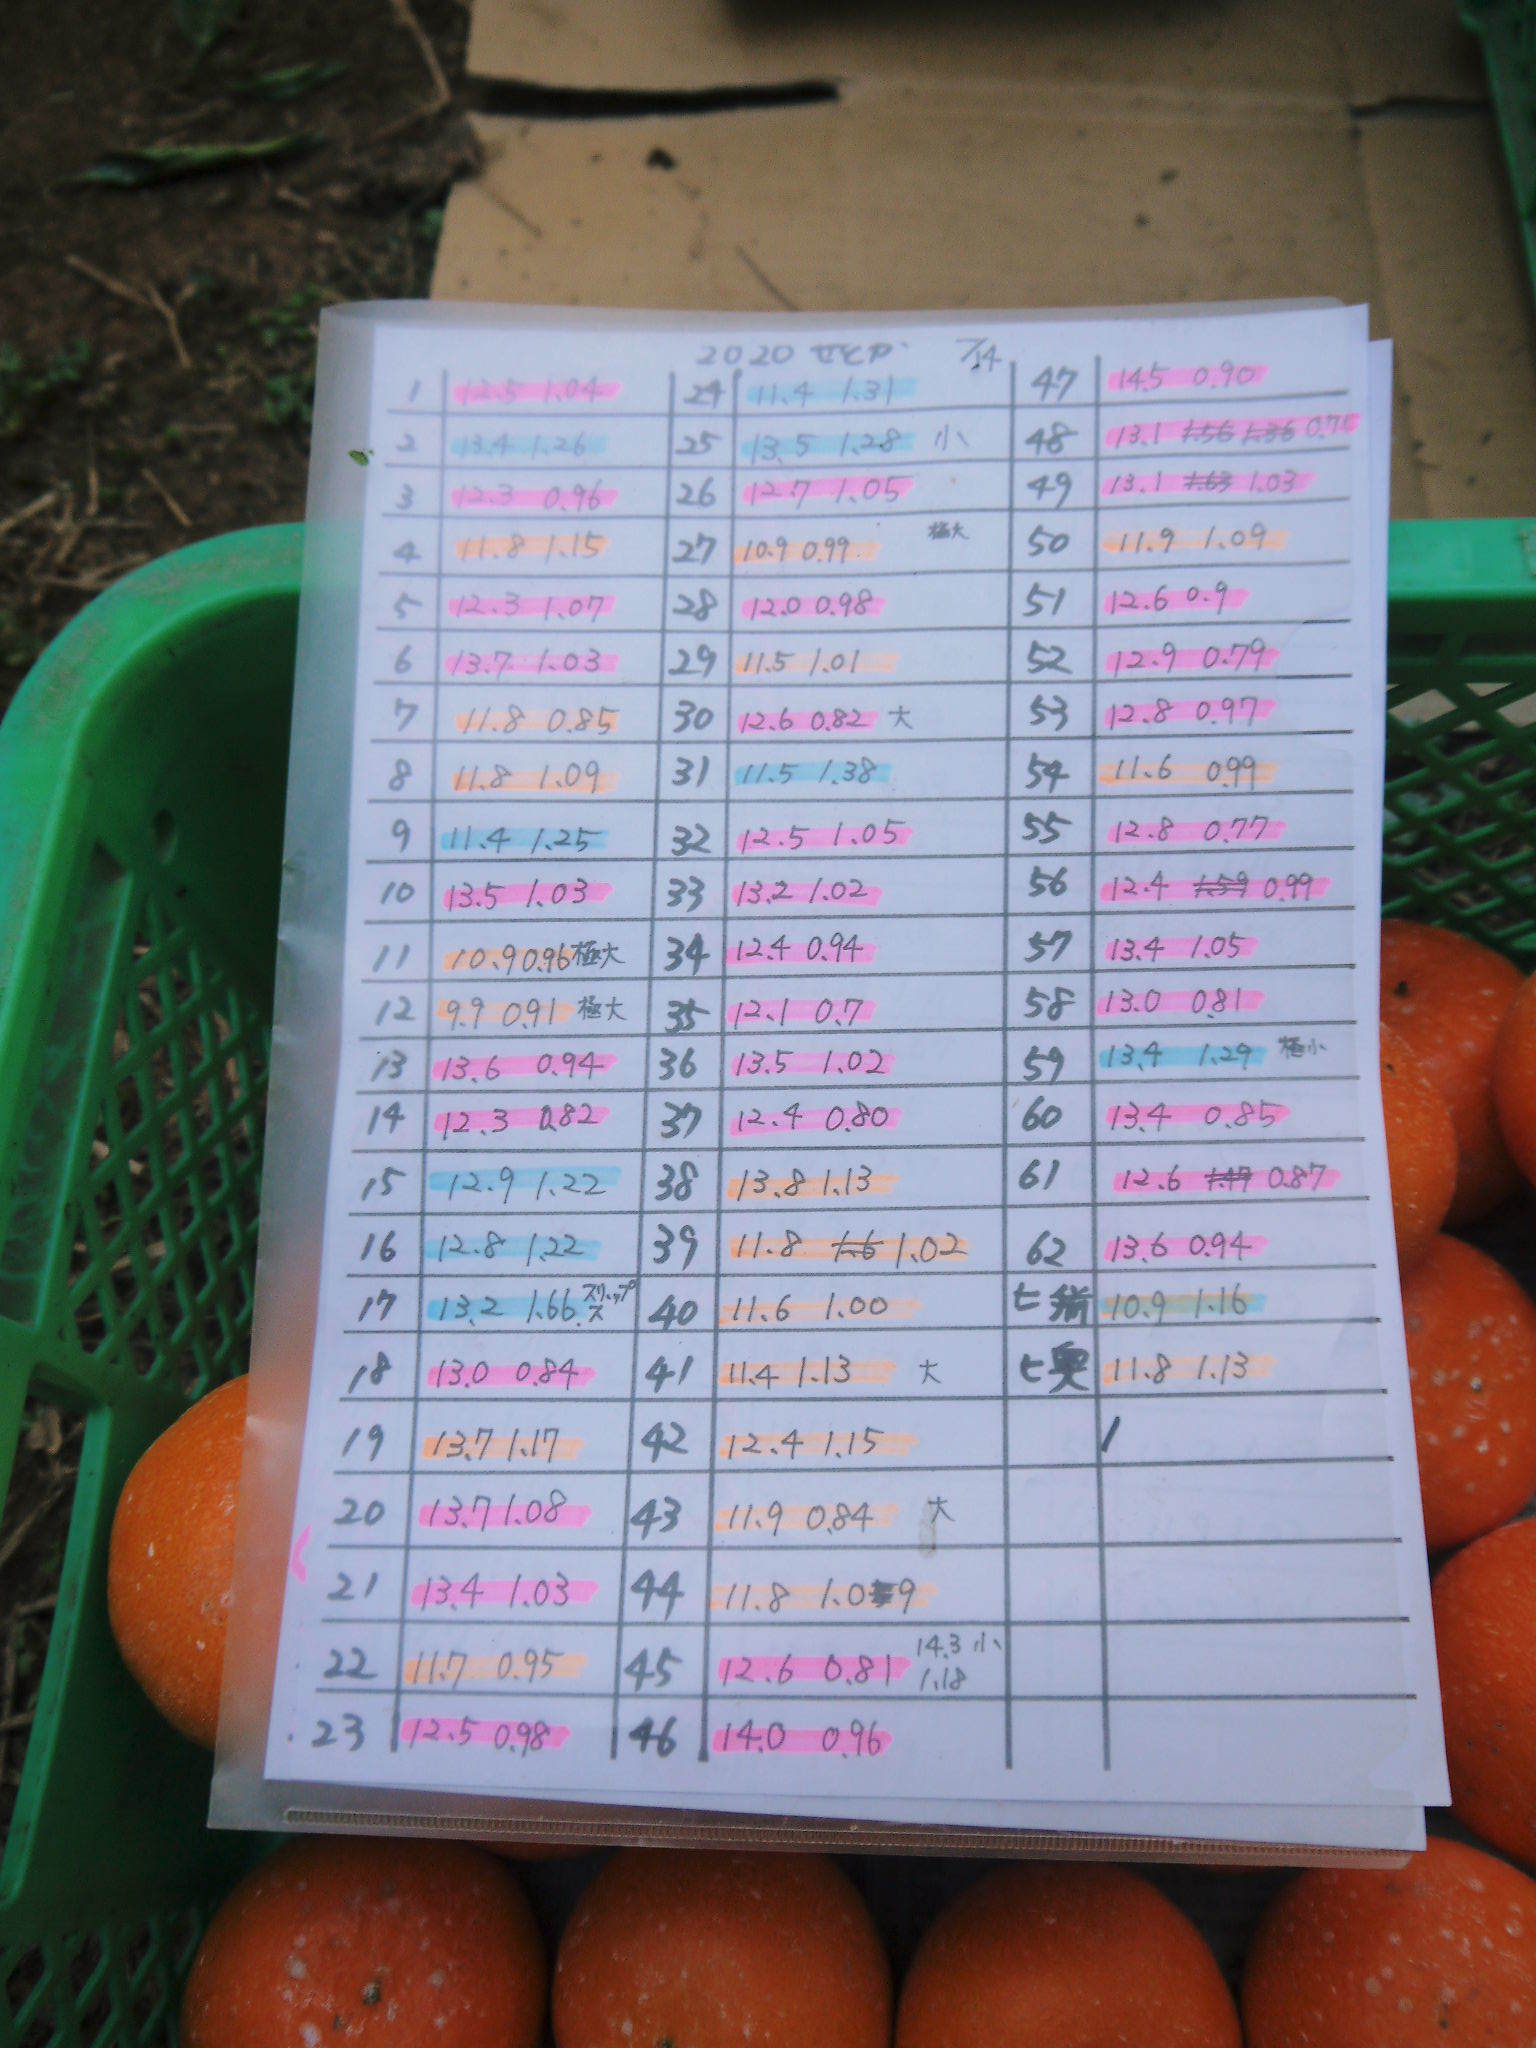 2020 せとか 1/14
1 12.5 1.04 24 11.4 1.31 47 14.5 0.90
2 13.4 1.26 25 13.5 1.28 小 48 13.1 1.56 1.36
3 12.3 0.96 26 12.7 1.05 49 13.1 1.63 1.03
4 11.8 1.15 27 10.9 0.99 極大 50 11.9 1.09
5 12.3 1.07 28 12.0 0.98 51 12.6 0.9
6 13.7 1.03 29 11.5 1.01 52 12.9 0.79
7 11.8 0.85 30 12.6 0.82 大 53 12.8 0.97
8 11.8 1.09 31 11.5 1.38 54 11.6 0.99
9 11.4 1.25 32 12.5 1.05 55 12.8 0.77
10 13.5 1.03 33 13.2 1.02 56 12.4 1.59 0.99
11 10.9 0.96 極大 34 12.4 0.94 57 13.4 1.05
12 9.9 0.91 極大 35 12.1 0.7 58 13.0 0.81
13 13.6 0.94 36 13.5 1.02 59 13.4 1.29 極小
14 12.3 0.82 37 12.4 0.80 60 13.4 0.85
15 12.9 1.22 38 13.8 1.13 61 12.6 1.47 0.87
16 12.8 1.22 39 11.8 1.6 1.02 62 13.6 0.94
17 13.2 1.66 スリップス 40 11.6 1.00 ヒ 10.9 1.16
18 13.0 0.84 41 11.4 1.13 大 ヒ奥 11.8 1.13
19 13.7 1.17 42 12.4 1.15
20 13.7 1.08 43 11.9 0.84 大
21 13.4 1.03 44 11.8 1.09
22 11.7 0.95 45 12.6 0.81 14.3 小 1.18
23 12.5 0.98 46 14.0 0.96